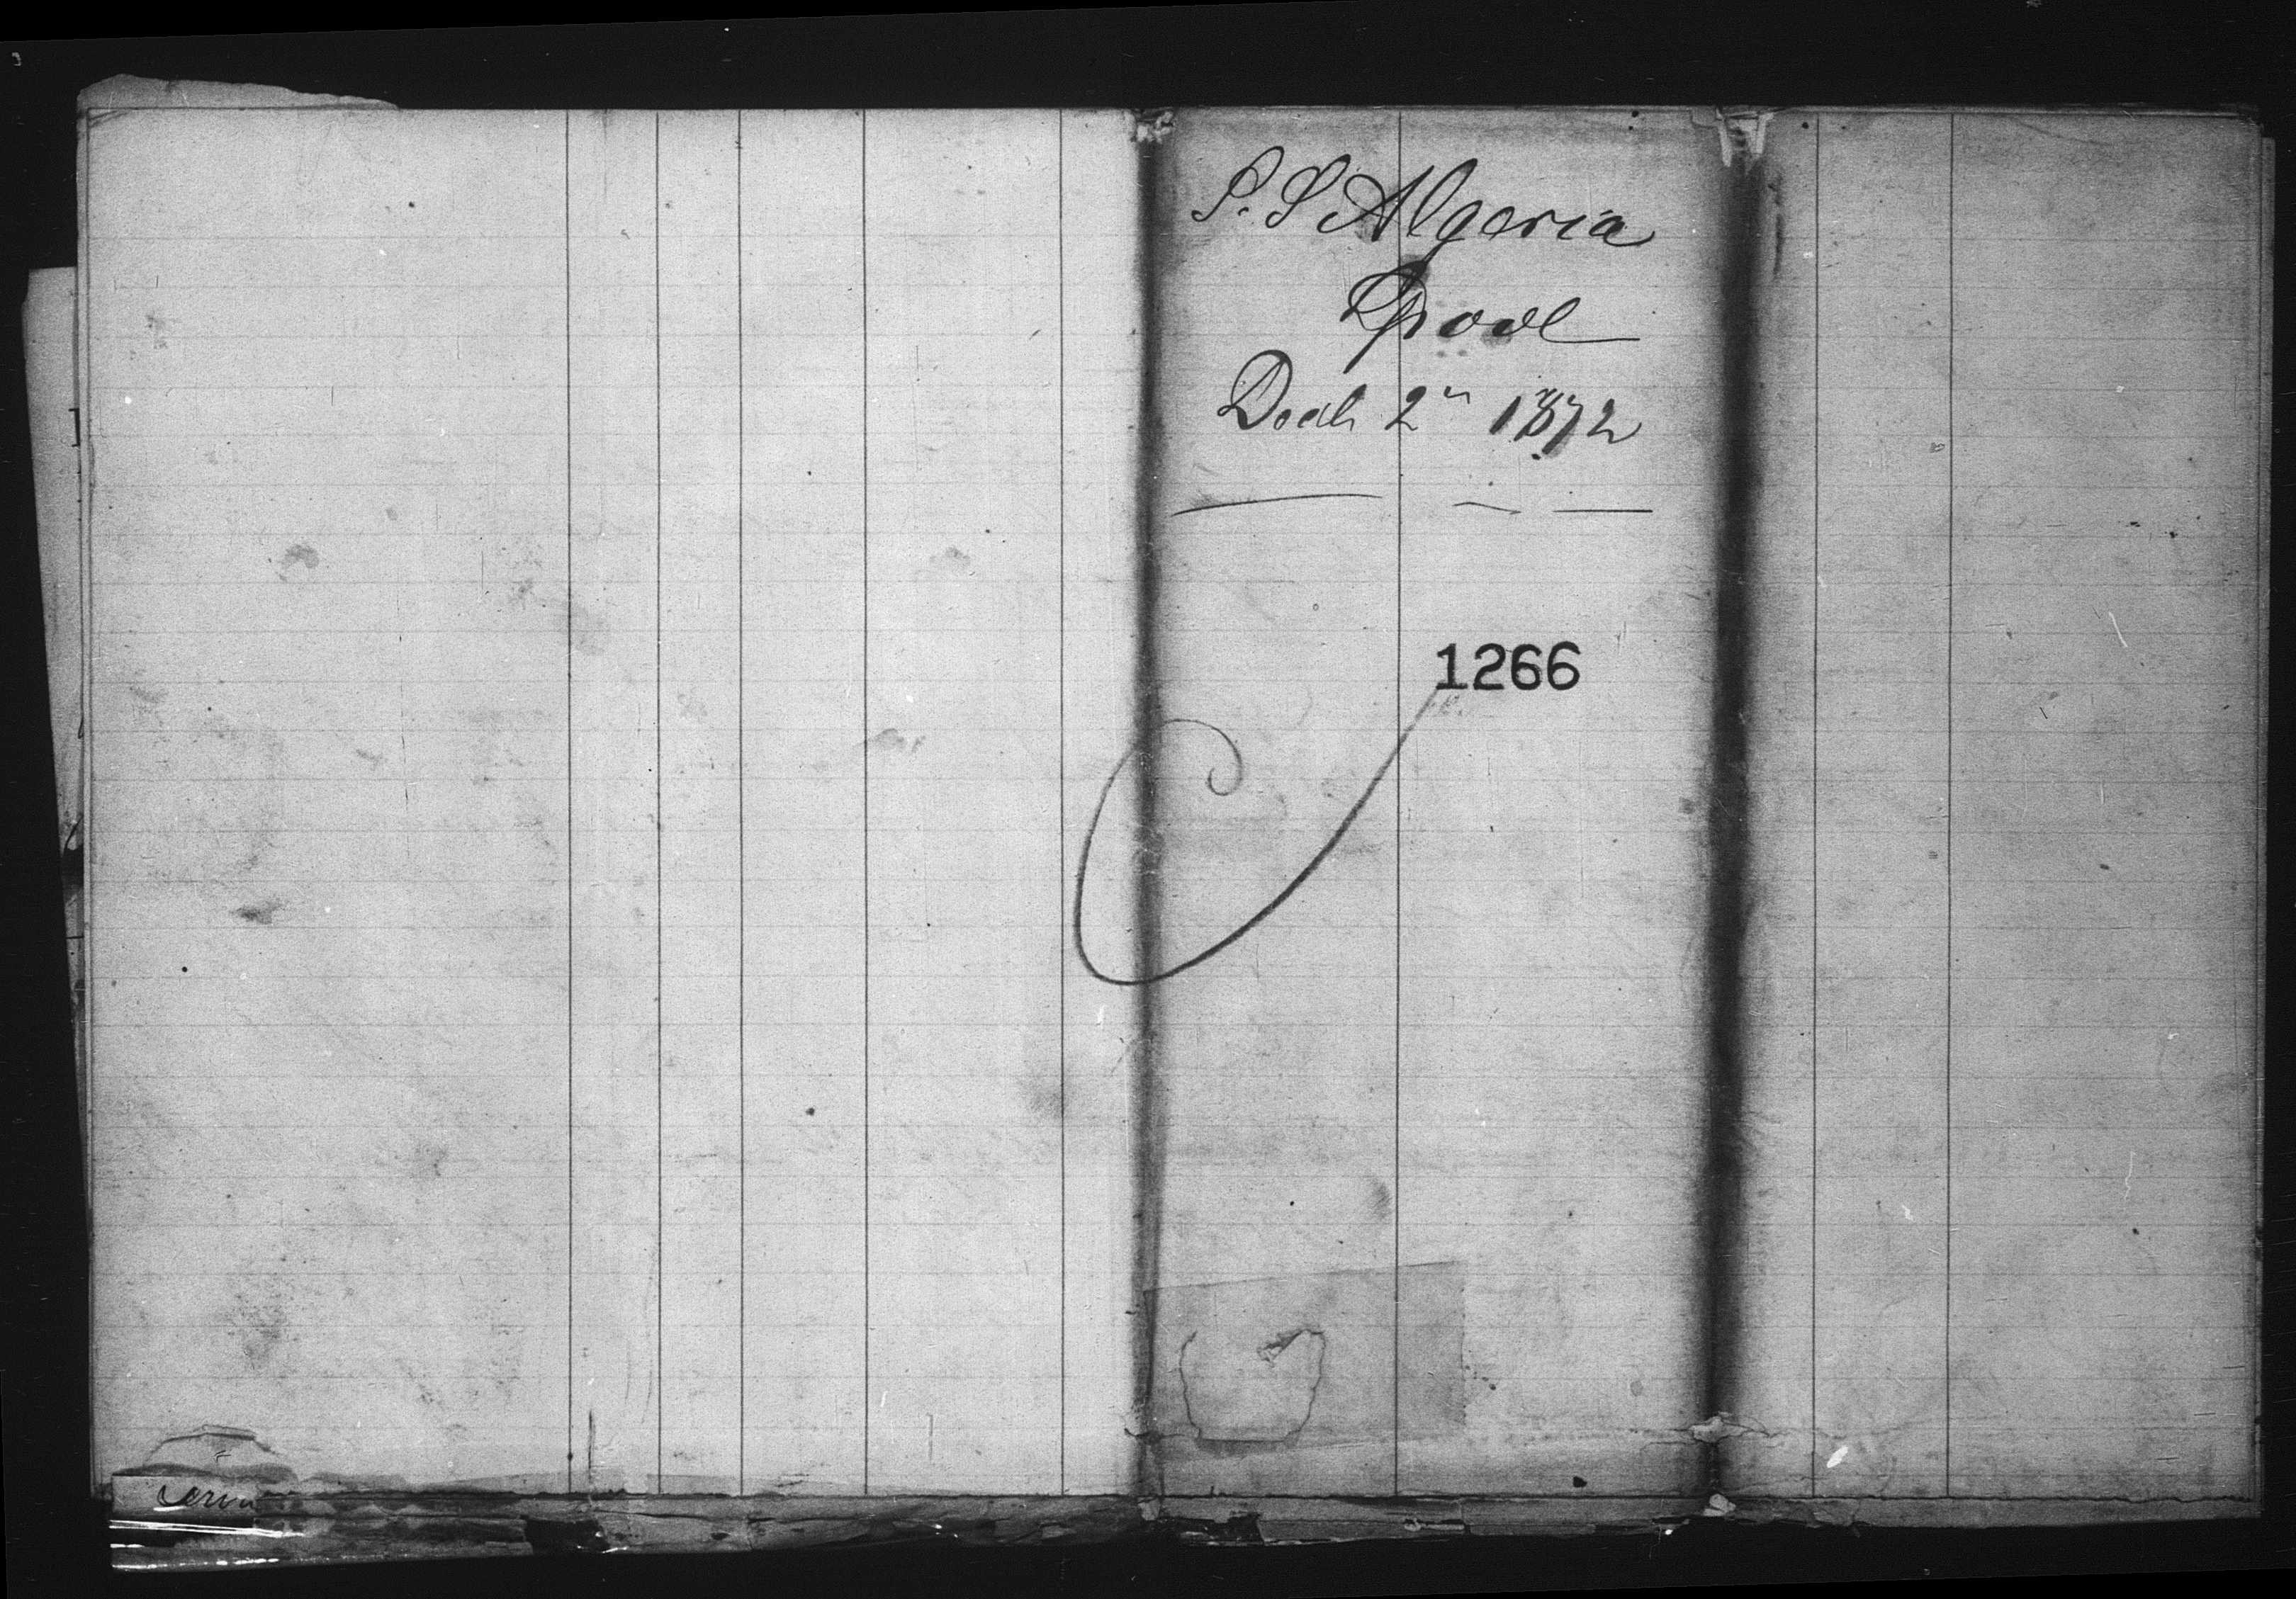 S. S Algeria
Lpool
Decb 2" 1872
1266